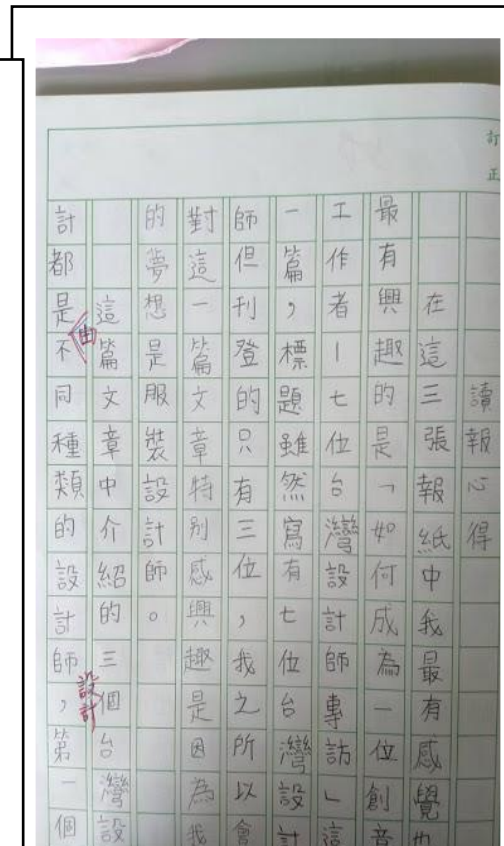 訂正
讀報心得
在這三張報紙中我最有感覺也
最有興趣的是「如何成為一位創意
工作者—七位台灣設計師專訪」這
一篇,標題雖然寫有七位台灣設計
師但刊登的只有三位,我之所以會
對這一篇文章特別感興趣是因為我
的夢想是服裝設計師。
這篇文章中介紹的三個台灣設
由
設計
計都是不同種類的設計師,第一個